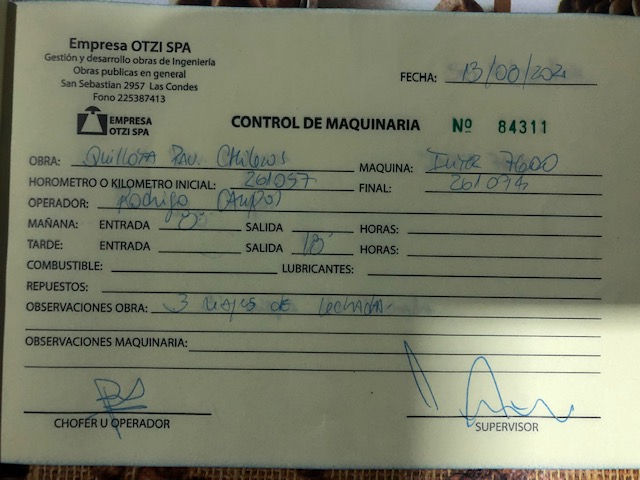 Empresa OTZI SPA
Gestión y desarrollo obras de Ingeniería
Obras publicas en general
San Sebastian 2957 Las Condes
Fono 225387413
FECHA: 13/08/202
EMPRESA
OTZI SPA
CONTROL DE MAQUINARIA Nº 84311
OBRA: Quillota Pav. MAQUINA: 7600
HOROMETRO O KILOMETRO INICIAL: 261057 FINAL: 261074
OPERADOR: Rodrigo
MAÑANA: ENTRADA 8 SALIDA HORAS:
TARDE: ENTRADA SALIDA 18 HORAS:
COMBUSTIBLE: LUBRICANTES:
REPUESTOS:
OBSERVACIONES OBRA: 3 viajes de
OBSERVACIONES MAQUINARIA:
CHOFER U OPERADOR SUPERVISOR